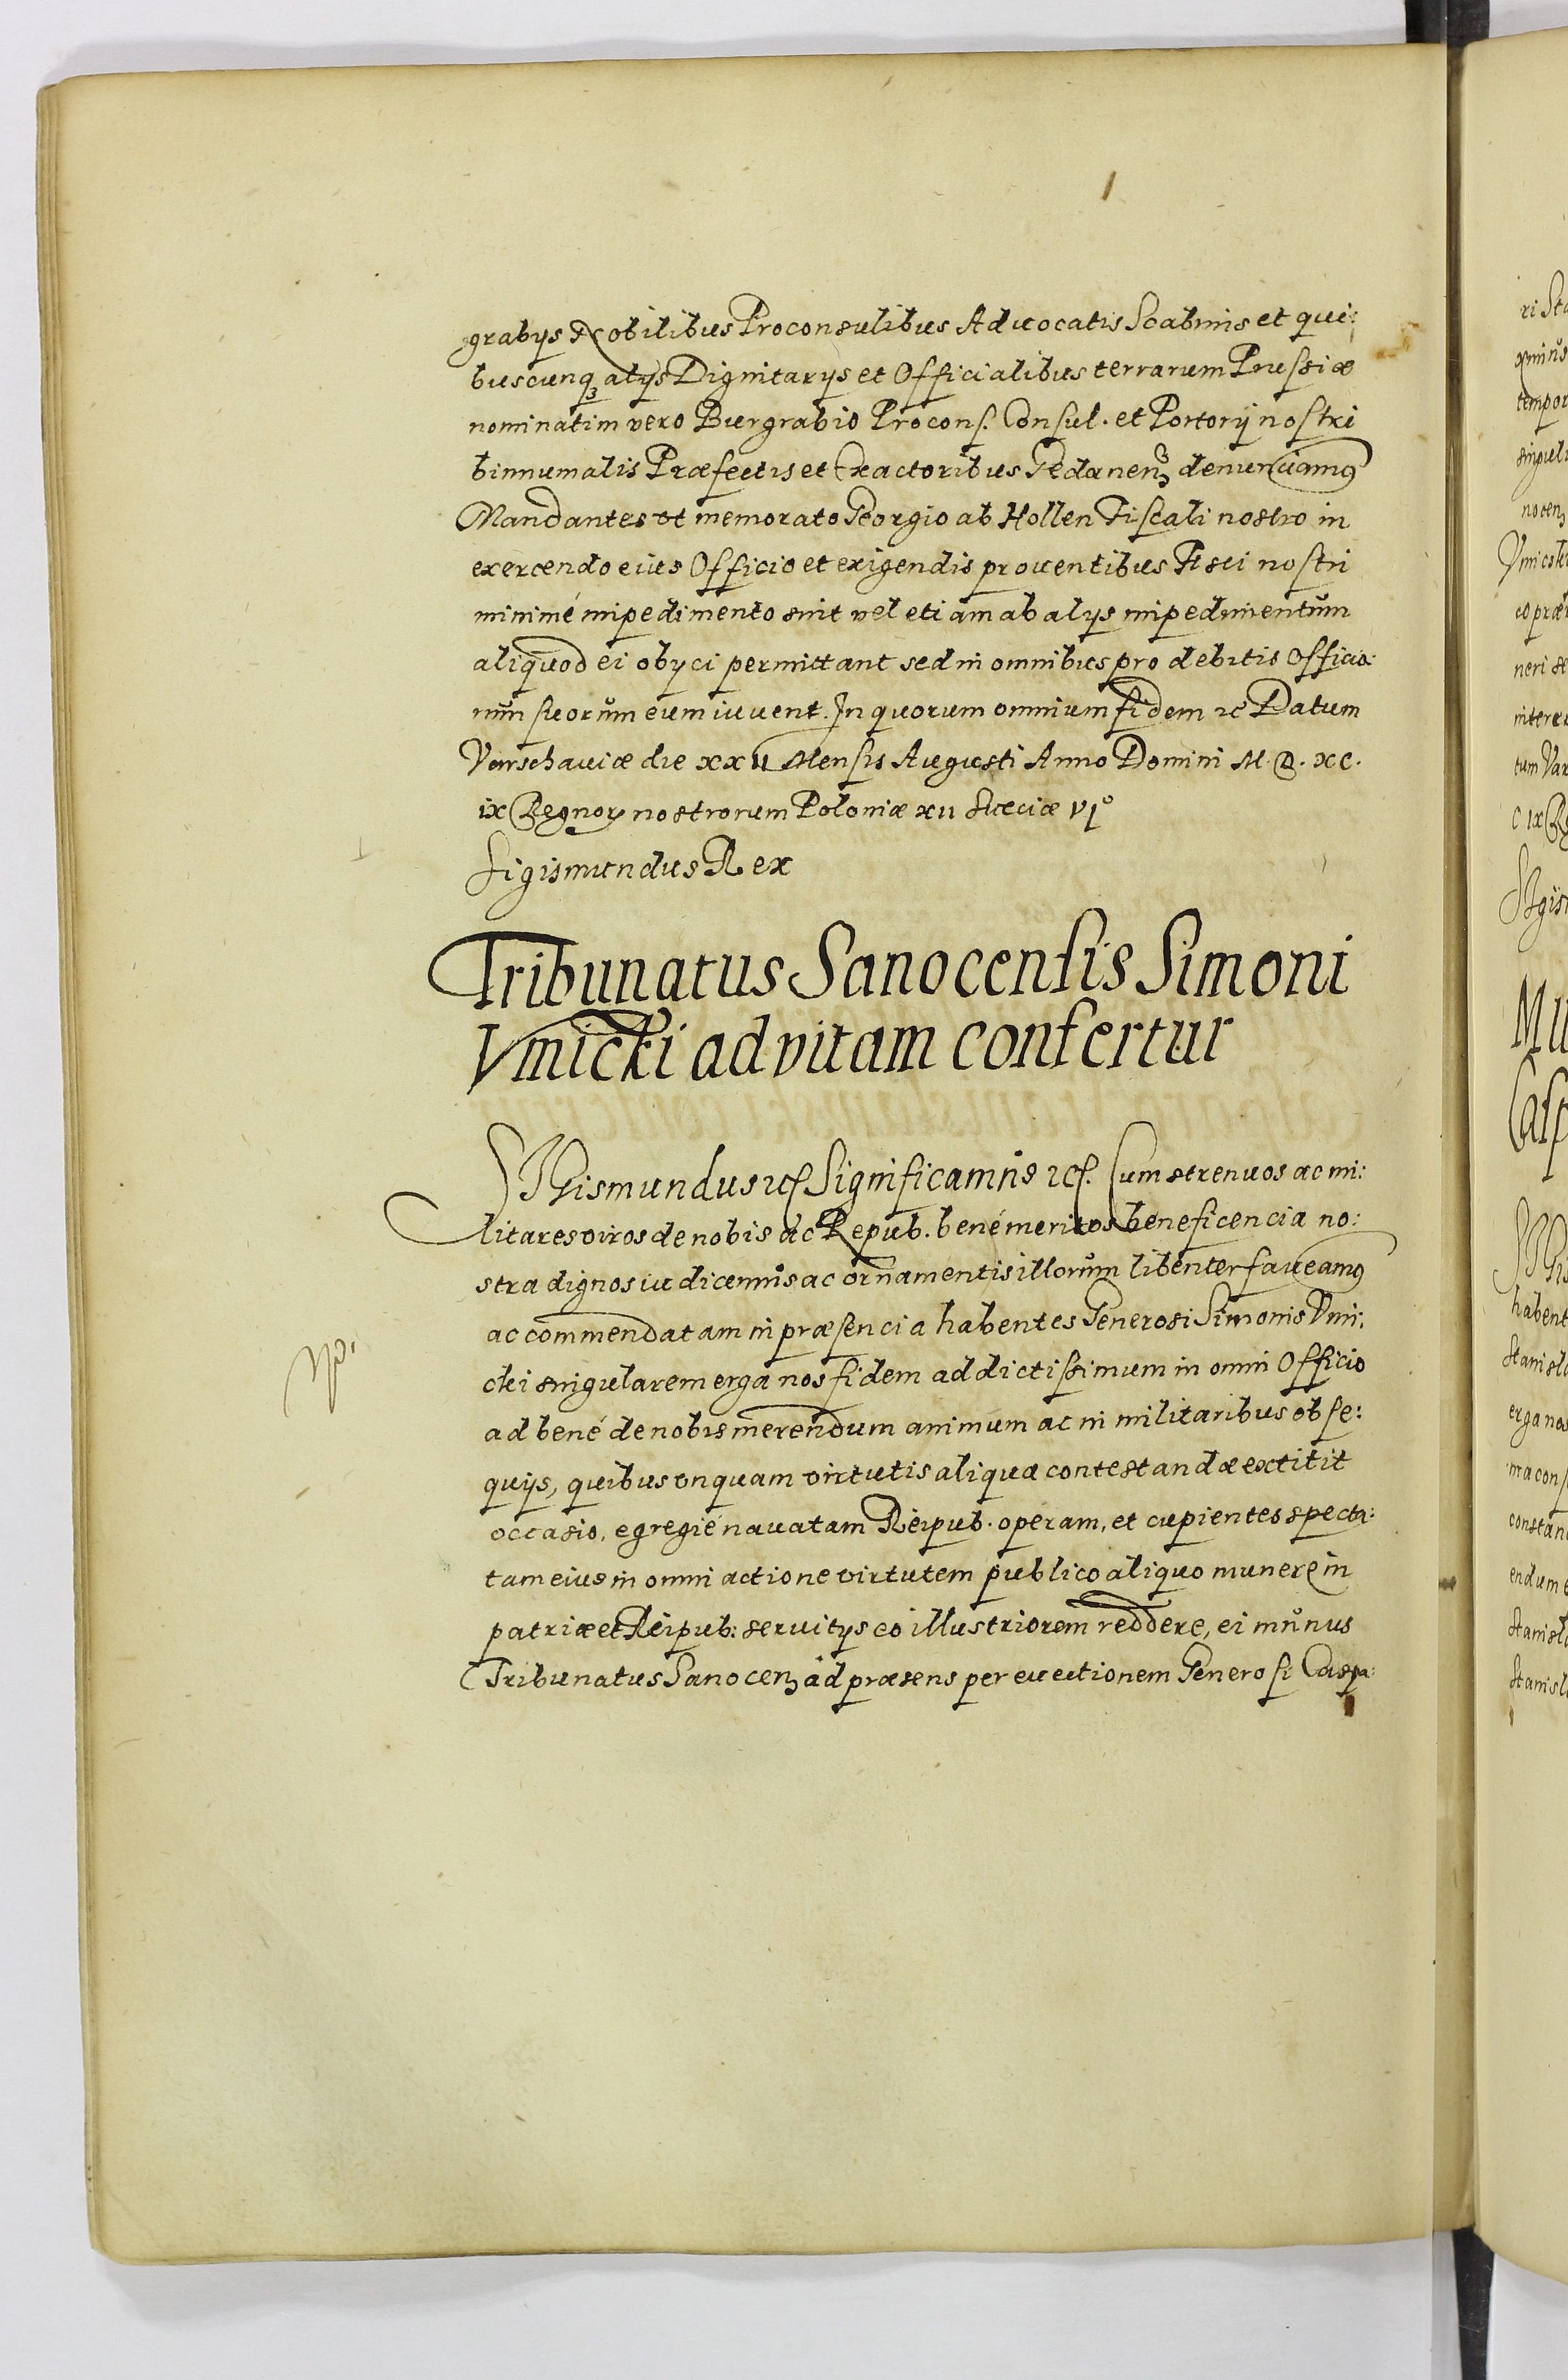 grabijs Nobilibus Proconsulibus Aduocatis Scabinis et qui:
buscunqȝ alijs Dignitarijs et Officialibus terrarum Prussiæ
nominatim vero Burgrabio Procons. Consul. et Portorij nostri
binnumalis Præfectis et Exactoribus Gedanenȝ denunciamꝰ
Mandantes vt memorato Georgio ab Hollen Fiscali nostro in
exercendo eius Officio et exigendis prouentibus Fisci nostri
minimé impedimento sint vel etiam ab alijs impedimentum
aliquod ei obyci permittant sed in omnibus pro debitis officio:
rum suorum eum iuuent. In quorum omnium fidem ꝛc Datum
Varschauiæ die XXII Mensis Augusti Anno Domini M.D.XC.
ix Regnorꝝ nostrorum Poloniæ XII Sueciæ VI°
Sigismundus Rex
Tribunatus Sanocensis Simoni
Vmicki ad vitam confertur
SIGismundus ꝛc Significamus ꝛc. Cum strenuos ac mi:
litares viros de nobis ac Repub. bené meritos beneficencia no:
stra dignos iudicemus ac ornamentis illorum libenter faueamꝰ
ac commendatam in præsencia habentes Generosi Simonis Vmi:
cki singularem erga nos fidem addictissimum in omni Officio
ad bené de nobis merendum animum ac in militaribus obse:
quijs, quibus vnquam virtutis aliqua contestandæ extitit
occasio, egregié nauatam Reipub. operam, et cupientes specta:
tam eius in omni actione virtutem publico aliquo munere in
patriæ et Reipub: seruitijs eo illustriorem reddere, ei munus
Tribunatus Sanocenȝ ad præsens per euectionem Generosi Caspa: